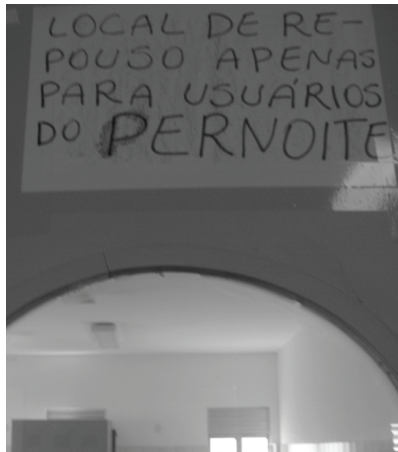 LOCAL DE RE-
POUSO APENAS
PARA USUÁRIOS
DO PERNOITE